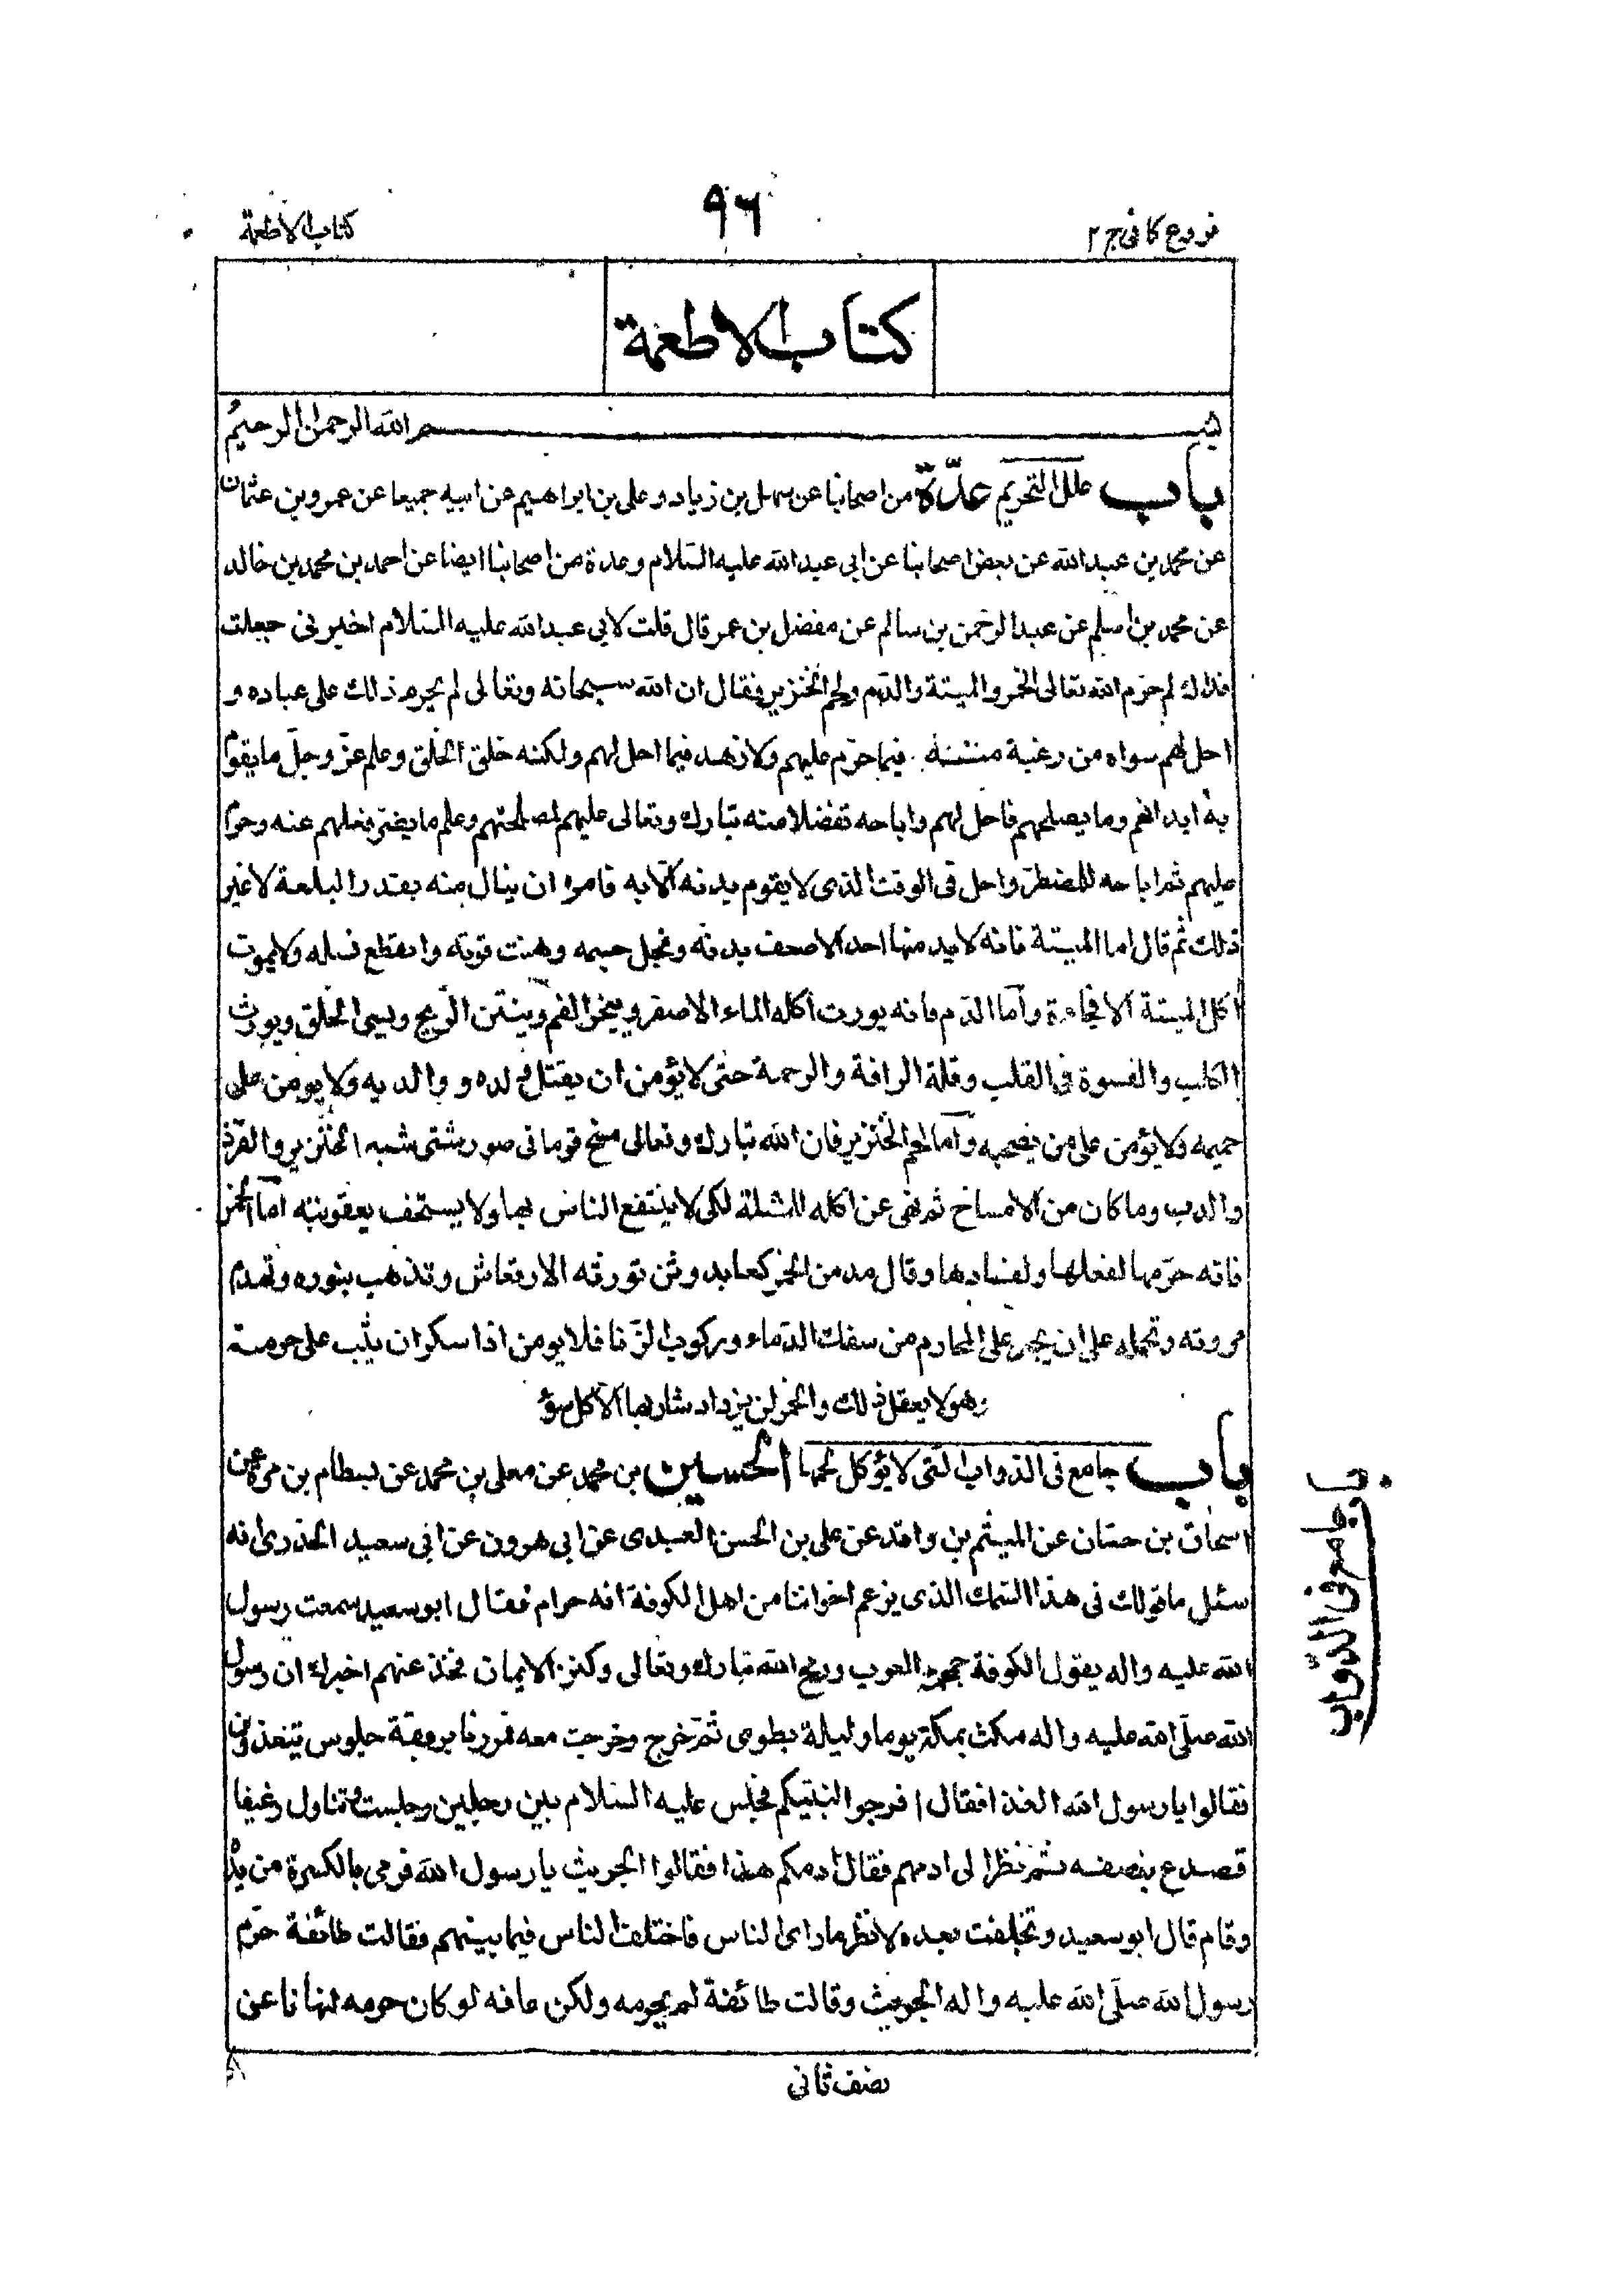 فروع كافى ج ٢
٩٦
كتاب الاطعمة
كتاب الاطعمة
بسم الله الرحمن الرحيم
باب علل التحريم عدّة من اصحابنا عن سهل بن زياد وعلى بن ابراهيم عن ابيه جميعا عن عمرو بن عثمان
عن محمد بن عبد الله عن بعض اصحابنا عن ابى عبد الله عليه السّلام وعدة من اصحابنا ايضا عن احمد بن محمد بن خالد
عن محمد بن اسلم عن عبد الرحمن بن سالم عن مفضل بن عمر قال قلت لابى عبد الله عليه السّلام اخبرنى جعلت
فداك لم حرّم الله تعالى الخمر والميتة والدّم ولحم الخنزير فقال ان الله سبحانه وتعالى لم يحرم ذلك على عباده و
احل لهم سواه من رغبة منه فيما حرّم عليهم ولا زهد فيما احل لهم ولكنه خلق الخلق وعلم عزّ وجلّ ما يقوم
به ابدانهم وما يصلحهم فاحل لهم واباحه تفضلا منه تبارك وتعالى عليهم لمصلحتهم وعلم ما يضرّ فنهاهم عنه وحرّم
عليهم ثم اباحه للمضطرّ واحل فى الوقت الذى لا يقوم بدنه الّا به فامره ان ينال منه بقدر البلغة لا غير
ذلك ثم قال اما الميتة فانه لا يدمنها احد الا ضعف بدنه ونحل جسمه وهنت قوته وانقطع نسله ولا يموت
آكل الميتة الا فجاءة وأمّا الدّم فانه يورث اكله الماء الاصفر ويبخر الفم وينتن الرّيح ويسئ الخلق ويورث
الكلب والقسوة فى القلب وقلة الرافة والرحمة حتى لا يؤمن ان يقتل ولده و والديه ولا يومن على
حميمه ولا يؤمن على من يصحبه وأمّا لحم الخنزير فان الله تبارك وتعالى مسخ قوما فى صور شتى شبه الخنزير والقرد
والدب وما كان من الامساخ ثم نهى عن اكله للمثلة لكى لا ينتفع الناس بها ولا يستخف بعقوبته امّا الخمر
فانه حرّمها لفعلها ولفسادها وقال مدمن الخمر كعابد وثن تورثه الارتعاش وتذهب بنوره وتهدم
مروته وتحمله على ان يجسر على المحارم من سفك الدّماء وركوب الزّنا فلا يومن اذا سكر ان يثب على حرمته
وهو لا يعقل ذلك والخمر لن يزداد شاربها الّا كل سؤ
باب جامع فى الدواب التى لا يؤكل لحمها الحسين بن محمد عن معلى بن محمد عن بسطام بن مرة عن
اسحاق بن حسّان عن الهيثم بن واقد عن على بن الحسن العبدى عن ابى هرون عن ابى سعيد الخدرى انه
سئل ما قولك فى هذا السّمك الذى يزعم اخواننا من اهل الكوفة انه حرام فقال ابو سعيد سمعت رسول
الله عليه واله يقول الكوفة جمجمة العرب ورمح الله تبارك وتعالى وكنز الايمان فخذ عنهم اخبرك ان رسول
الله صلّى الله عليه واله مكث بمكة يوما وليلة بطوى ثمّ خرج وخرجت معه فمررنا برفقة جلوس يتغذون
فقالوا يا رسول الله الغذا فقال افرجوا لنبيكم فجلس عليه السّلام بين رجلين وجلست وتناول رغيفا
فصدع بنصفه ثمّ نظر الى ادمهم فقال ادمكم هذا فقالوا الجريث يا رسول الله فرمى بالكسرة من يده
وقام قال ابو سعيد وتخلفت بعده لانظر ما راى الناس فاختلف الناس فيما بينهم فقالت طائفة حرّم
رسول الله صلّى الله عليه واله الجريث وقالت طائفة لم يحرمه ولكن عافه لو كان حرمه لنهانا عن
باب جامع فى الدّواب
نصف ثانى